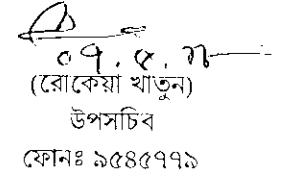 (রোকেয়া খাতুন)
উপসচিব
ফোনঃ ৯৫৪৫৭৭৯